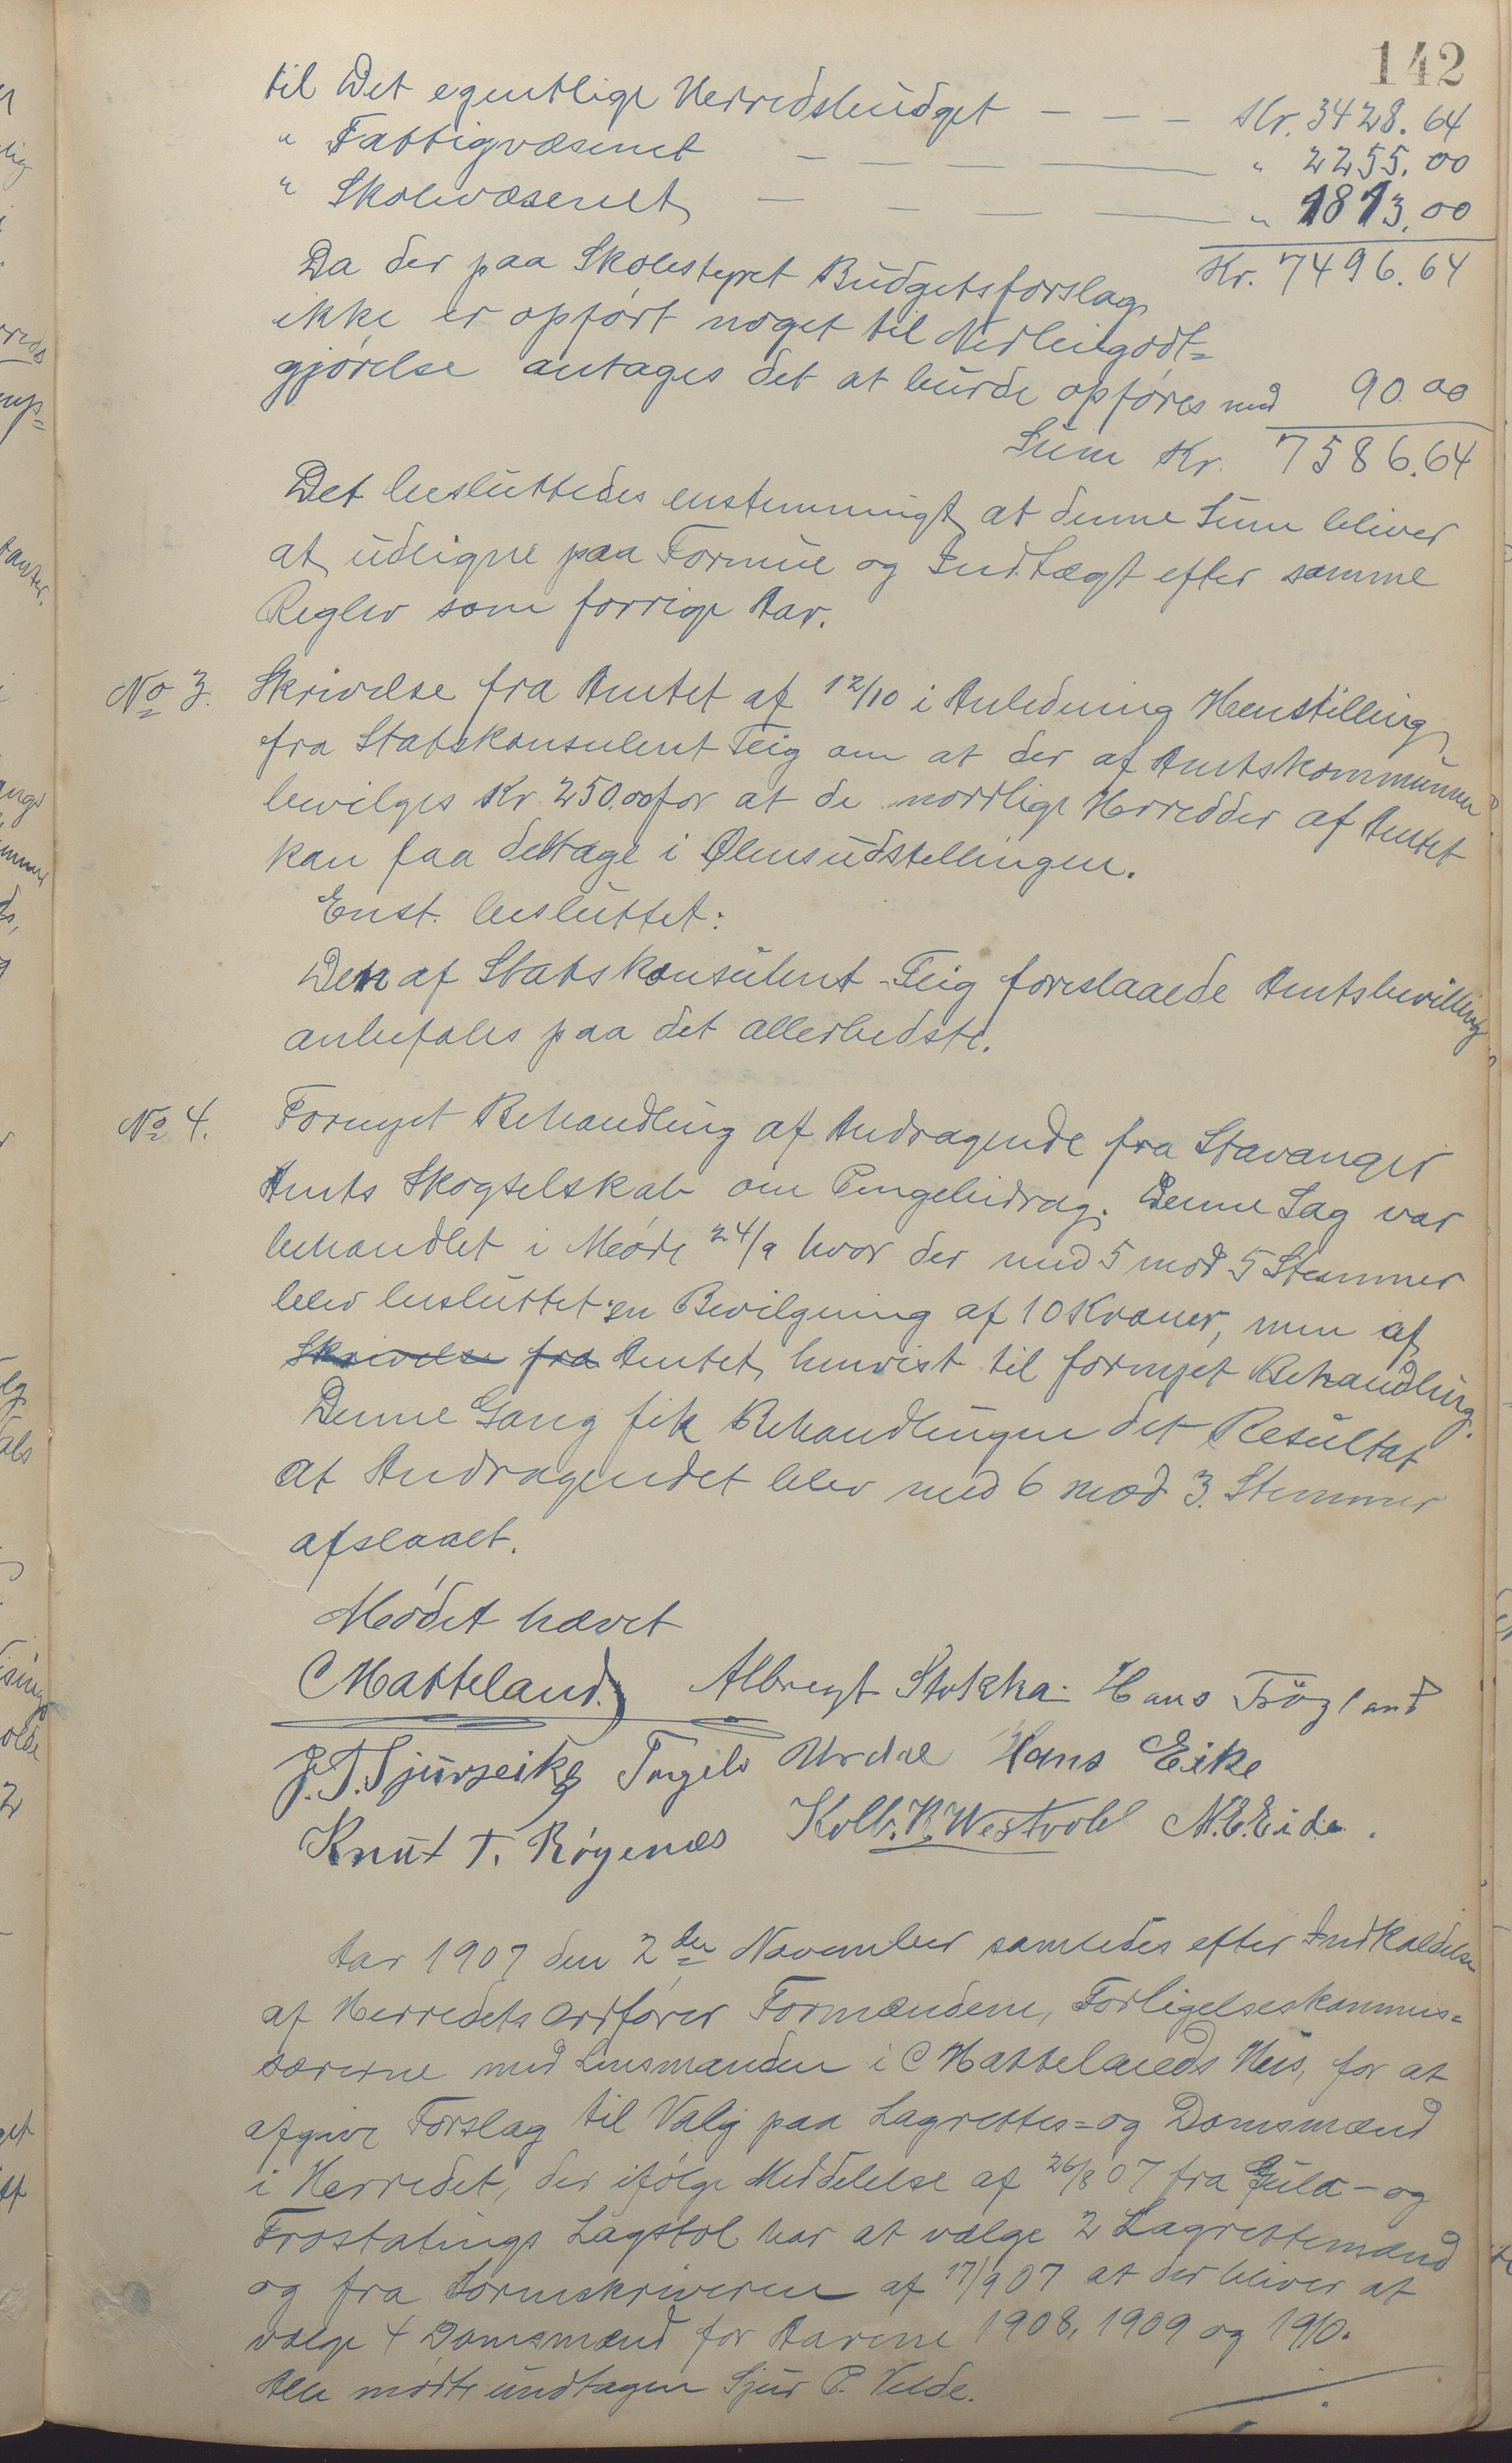 142
til Det egentlige Herredsbudget – – – Kr. 3428.64
" Fattigvæsenet – – – – " 2255.00
" Skolevæsenet – – – – " 1813.00
Kr. 7496.64
Da der paa Skolestyret Budgetsforslag
ikke er opført noget til Nedleiegodt=
gjørelse antages det at burde opføres med 90.00
Sum Kr. 7586.64
Det besluttedes enstemmigt at denne Sum bliver
at udligne paa Formue og Indtægt efter samme
Regler som forrige Aar.
No 3. Skrivelse fra Amtet af 12/10 i Anledning Henstilling
fra Statskonsulent Teig om at der af Amtskommunen
bevilges Kr. 250.00 for at de nordlige Herredder af Amtet
kan faa deltage i Ølensudstellingen.
Enst. besluttet:
Den af Statskonsulent Teig foreslaaede Amtsbevilling
anbefales paa det allerbedste.
No 4. Fornyet Behandling af Andragende fra Stavanger
Amts Skogselskab om Pengebidrag. Denne Sag var
behandlet i Møde 24/9 hvor der med 5 mod 5 Stemmer
blev besluttet en Bevilgning af 10 Kroner, men af
Skrivelse fra Amtet henvist til fornyet Behandling.
Denne Gang fik Behandlingen det Resultat
at Andragendet blev med 6 mod 3. Stemmer
afslaaet.
Mødet hævet
C Hatteland. Albregt Stokka Hans Trögland
J. T. Sjurseike Torgils Urdal Hans Eike
Knut T. Røgenæs Kolb. K. Westvold N. E. Eide.
Aar 1907 den 2den November samledes efter Indkaldelse
af Herredets Ordfører Formændene, Forligelseskommis=
særerne med Lensmanden i C Hattelands Hus, for at
afgive Forslag til Valg paa Lagrettes= og Domsmænd
i Herredet, der ifølge Meddelelse af 26/8 07 fra Gula- og
Frostatings Lagstol har at vælge 2 Lagrettemænd
og fra Sorenskriveren af 17/9 07 at der bliver at
vælge 4 Domsmænd for Aarene 1908, 1909 og 1910.
Alle mødte undtagen Sjur P. Velde.